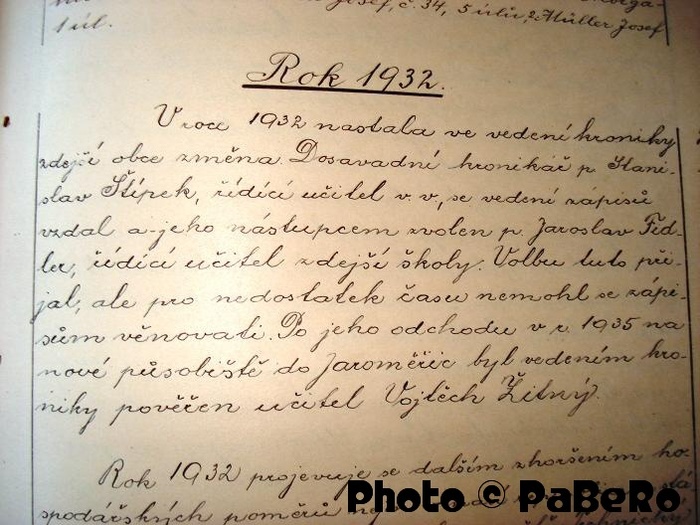 Josef, č. 34, 5 úlů, Müller Josef
1 úl.
Rok 1932.
V roce 1932 nastala ve vedení kroniky
zdejší obce změna. Dosavadní kronikář p. Stani-
slav Štípek, řídící učitel v. v., se vedení zápisů
vzdal a jeho nástupcem zvolen p. Jaroslav Fid-
ler, řídící učitel zdejší školy. Volbu tuto při-
jal, ale pro nedostatek času nemohl se zápi-
sům věnovati. Po jeho odchodu v r. 1935 na
nové působiště do Jaroměřic byl vedením kro-
niky pověřen učitel Vojtěch Žitný.
Rok 1932 projevuje se dalším zhoršením ho-
spodářských poměrů
Photo © PaBeRo